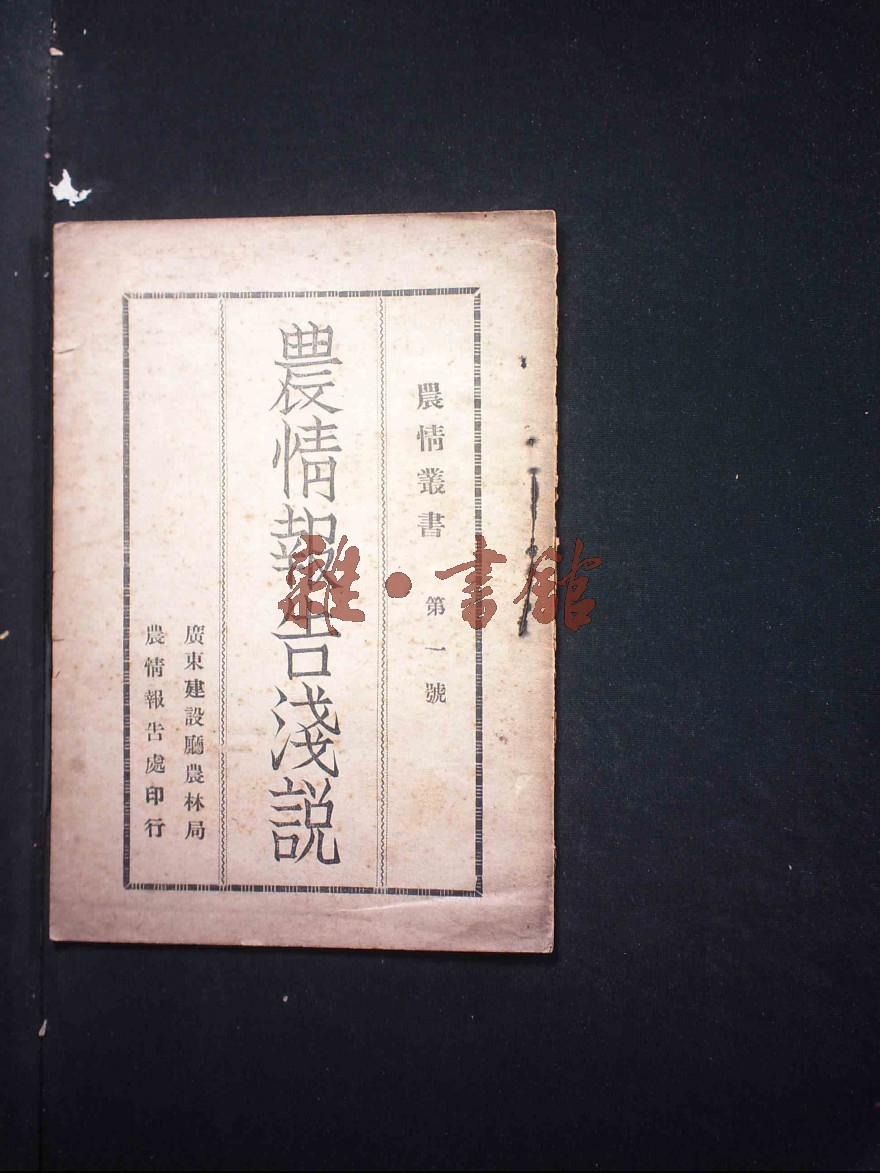 農情叢書 第一號
農情報告淺説
廣東建設廳農林局
農情報告處印行
雜·書館